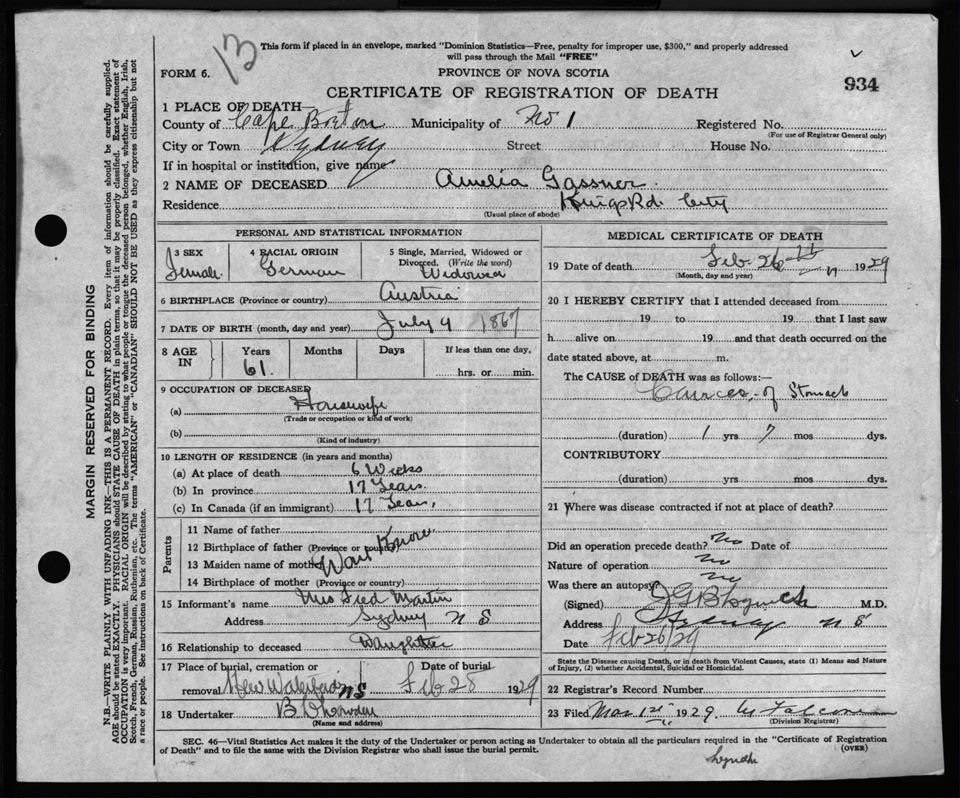 13
This form if placed in an envelope, marked "Dominion Statistics—Free, penalty for improper use, $300," and properly addressed
will pass through the Mail "FREE"
FORM 6.
PROVINCE OF NOVA SCOTIA
934
CERTIFICATE OF REGISTRATION OF DEATH
1 PLACE OF DEATH—
County of Cape Breton Municipality of No 1 Registered No.
(For use of Registrar General only)
City or Town Sydney Street House No.
If in hospital or institution, give name
2 NAME OF DECEASED Amelia Gassner
Residence Kings Rd. City
(Usual place of abode)
PERSONAL AND STATISTICAL INFORMATION
3 SEX 4 RACIAL ORIGIN 5 Single, Married, Widowed or
Divorced. (Write the word)
Female German Widowed
6 BIRTHPLACE (Province or country) Austria
7 DATE OF BIRTH (month, day and year) July 4 1867
8 AGE IN Years Months Days If less than one day,
61 hrs. or min.
9 OCCUPATION OF DECEASED
(a) Housewife
(Trade or occupation or kind of work)
(b)
(Kind of industry)
10 LENGTH OF RESIDENCE (in years and months)
(a) At place of death 6 Weeks
(b) In province 17 Years.
(c) In Canada (if an immigrant) 17 Years,
Parents
11 Name of father
12 Birthplace of father (Province or country)
13 Maiden name of mother Wont Know
14 Birthplace of mother (Province or country)
15 Informant's name Mrs Fred Martin
Address Sydney N S
16 Relationship to deceased Daughter
17 Place of burial, cremation or Date of burial
removal New Waterford NS Feb 28 1929
18 Undertaker
(Name and address)
MEDICAL CERTIFICATE OF DEATH
19 Date of death Feb 26th 1929
(Month, day and year)
20 I HEREBY CERTIFY that I attended deceased from
19 to 19 that I last saw
h alive on 19 and that death occurred on the
date stated above, at m.
The CAUSE of DEATH was as follows:—
Cancer of Stomach
(duration) 1 yrs 7 mos dys.
CONTRIBUTORY
(duration) yrs mos dys.
21 Where was disease contracted if not at place of death?
Did an operation precede death? No Date of
Nature of operation No
Was there an autopsy No
(Signed) J G B Lynch M.D.
Address Sydney N S
Date Feb 26/29
State the Disease causing Death, or in death from Violent Causes, state (1) Means and Nature
of Injury, (2) whether Accidental, Suicidal or Homicidal.
22 Registrar's Record Number
23 Filed Mar 1st 1929
(Division Registrar)
SEC. 46—Vital Statistics Act makes it the duty of the Undertaker or person acting as Undertaker to obtain all the particulars required in the "Certificate of Registration
of Death" and to file the same with the Division Registrar who shall issue the burial permit.
(OVER)
Lynch
MARGIN RESERVED FOR BINDING
N.B.—WRITE PLAINLY WITH UNFADING INK—THIS IS A PERMANENT RECORD. Every item of information should be carefully supplied.
AGE should be stated EXACTLY. PHYSICIANS should STATE CAUSE OF DEATH in plain terms, so that it may be properly classified. Exact statement of
OCCUPATION is very important. RACIAL ORIGIN will be described by stating to what people or tongue the deceased person belonged, whether English, Irish,
Scotch, French, German, Russian, Ruthenian, etc. The terms "AMERICAN" or "CANADIAN" SHOULD NOT BE USED as they express citizenship but not
a race or people. See instructions on back of Certificate.